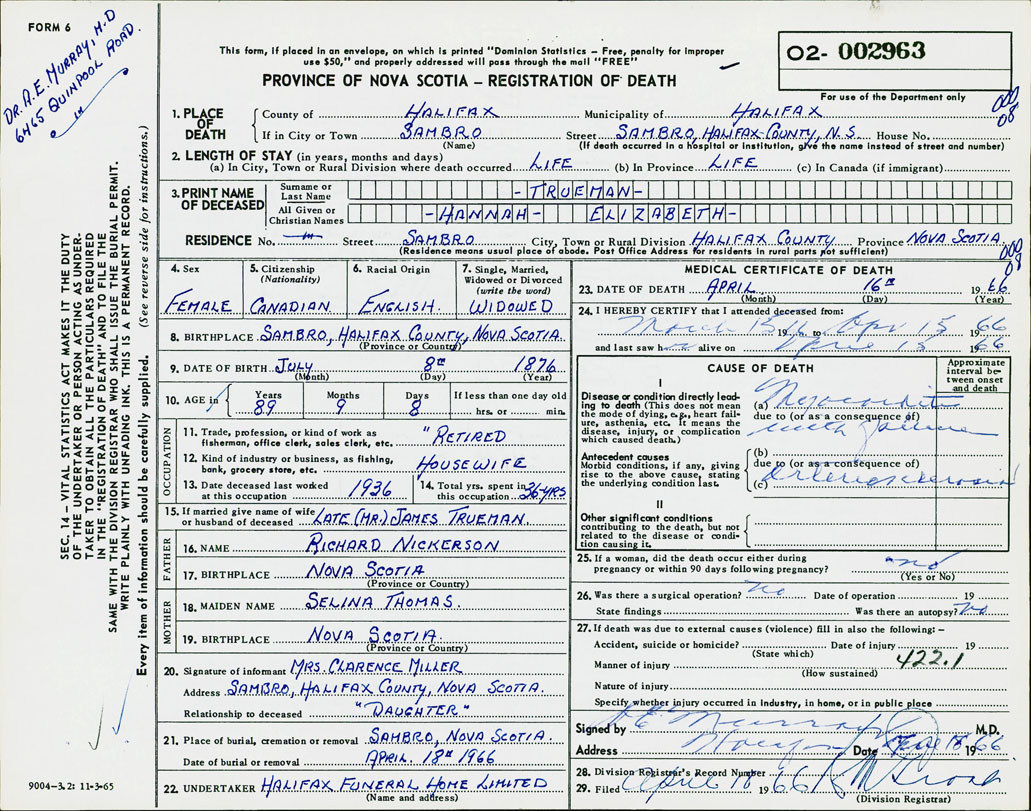 FORM 6
DR. A.E. MURRAY, M.D
6465 QUINPOOL ROAD.
This form, if placed in an envelope, on which is printed "Dominion Statistics – Free, penalty for improper
use $50," and properly addressed will pass through the mail "FREE"
PROVINCE OF NOVA SCOTIA – REGISTRATION OF DEATH
02- 002963
For use of the Department only
000
08
1. PLACE OF DEATH
County of HALIFAX Municipality of HALIFAX
If in City or Town SAMBRO Street SAMBRO, HALIFAX COUNTY, N.S. House No.
(Name) (If death occurred in a hospital or institution, give the name instead of street and number)
2. LENGTH OF STAY (in years, months and days)
(a) In City, Town or Rural Division where death occurred LIFE (b) In Province LIFE (c) In Canada (if immigrant)
3. PRINT NAME OF DECEASED
Surname or Last Name -TRUEMAN-
All Given or Christian Names -HANNAH- ELIZABETH-
RESIDENCE No. Street SAMBRO City, Town or Rural Division HALIFAX COUNTY Province NOVA SCOTIA.
(Residence means usual place of abode. Post Office Address for residents in rural parts not sufficient)
000
8
0
4. Sex
FEMALE
5. Citizenship
(Nationality)
CANADIAN
6. Racial Origin
ENGLISH.
7. Single, Married,
Widowed or Divorced
(write the word)
WIDOWED
8. BIRTHPLACE SAMBRO, HALIFAX COUNTY, NOVA SCOTIA.
(Province or County)
9. DATE OF BIRTH JULY 8TH 1876
(Month) (Day) (Year)
10. AGE in Years Months Days If less than one day old
89 9 8 hrs. or min.
OCCUPATION
11. Trade, profession, or kind of work as
fisherman, office clerk, sales clerk, etc. "RETIRED
12. Kind of industry or business, as fishing,
bank, grocery store, etc. HOUSEWIFE
13. Date deceased last worked
at this occupation 1936
14. Total yrs. spent in
this occupation 36-YRS
15. If married give name of wife
or husband of deceased LATE (MR.) JAMES TRUEMAN.
FATHER
16. NAME RICHARD NICKERSON
17. BIRTHPLACE NOVA SCOTIA
(Province or Country)
MOTHER
18. MAIDEN NAME SELINA THOMAS.
19. BIRTHPLACE NOVA SCOTIA.
(Province or Country)
20. Signature of informant MRS. CLARENCE MILLER
Address SAMBRO, HALIFAX COUNTY, NOVA SCOTIA.
Relationship to deceased "DAUGHTER"
21. Place of burial, cremation or removal SAMBRO, NOVA SCOTIA.
Date of burial or removal APRIL. 18TH 1966
22. UNDERTAKER HALIFAX FUNERAL HOME LIMITED
(Name and address)
MEDICAL CERTIFICATE OF DEATH
23. DATE OF DEATH APRIL 16TH 1966
(Month) (Day) (Year)
24. I HEREBY CERTIFY that I attended deceased from:
March 15 19 to Apr 15 1966
and last saw h alive on April 15 1966
CAUSE OF DEATH
Approximate
interval be-
tween onset
and death
I
Disease or condition directly lead-
ing to death (This does not
mean the mode of dying, e.g., heart fail-
ure, asthenia, etc. It means the
disease, injury, or complication
which caused death.)
(a) Myocarditis
due to (or as a consequence of)
with failure
Antecedent causes
Morbid conditions, if any, giving
rise to the above cause, stating
the underlying condition last.
(b)
due to (or as a consequence of)
(c) arteriosclerosis
II
Other significant conditions
contributing to the death, but not
related to the disease or condi-
tion causing it.
25. If a woman, did the death occur either during
pregnancy or within 90 days following pregnancy? no
(Yes or No)
26. Was there a surgical operation? No Date of operation 19
State findings Was there an autopsy? No
27. If death was due to external causes (violence) fill in also the following:–
Accident, suicide or homicide? Date of injury 19
(State which)
Manner of injury 422.1
(How sustained)
Nature of injury
Specify whether injury occurred in Industry, in home, or in public place
Signed by A E Murray M.D.
Address Date 18 1966
28. Division Registrar's Record Number
29. Filed April 18 1966
(Division Registrar)
SEC. 14 – VITAL STATISTICS ACT MAKES IT THE DUTY
OF THE UNDERTAKER OR PERSON ACTING AS UNDER-
TAKER TO OBTAIN ALL THE PARTICULARS REQUIRED
IN THE "REGISTRATION OF DEATH" AND TO FILE THE
SAME WITH THE DIVISION REGISTRAR WHO SHALL ISSUE THE BURIAL PERMIT.
WRITE PLAINLY WITH UNFADING INK. THIS IS A PERMANENT RECORD.
Every item of information should be carefully supplied. (See reverse side for instructions.)
9004-3.2: 11-3-65